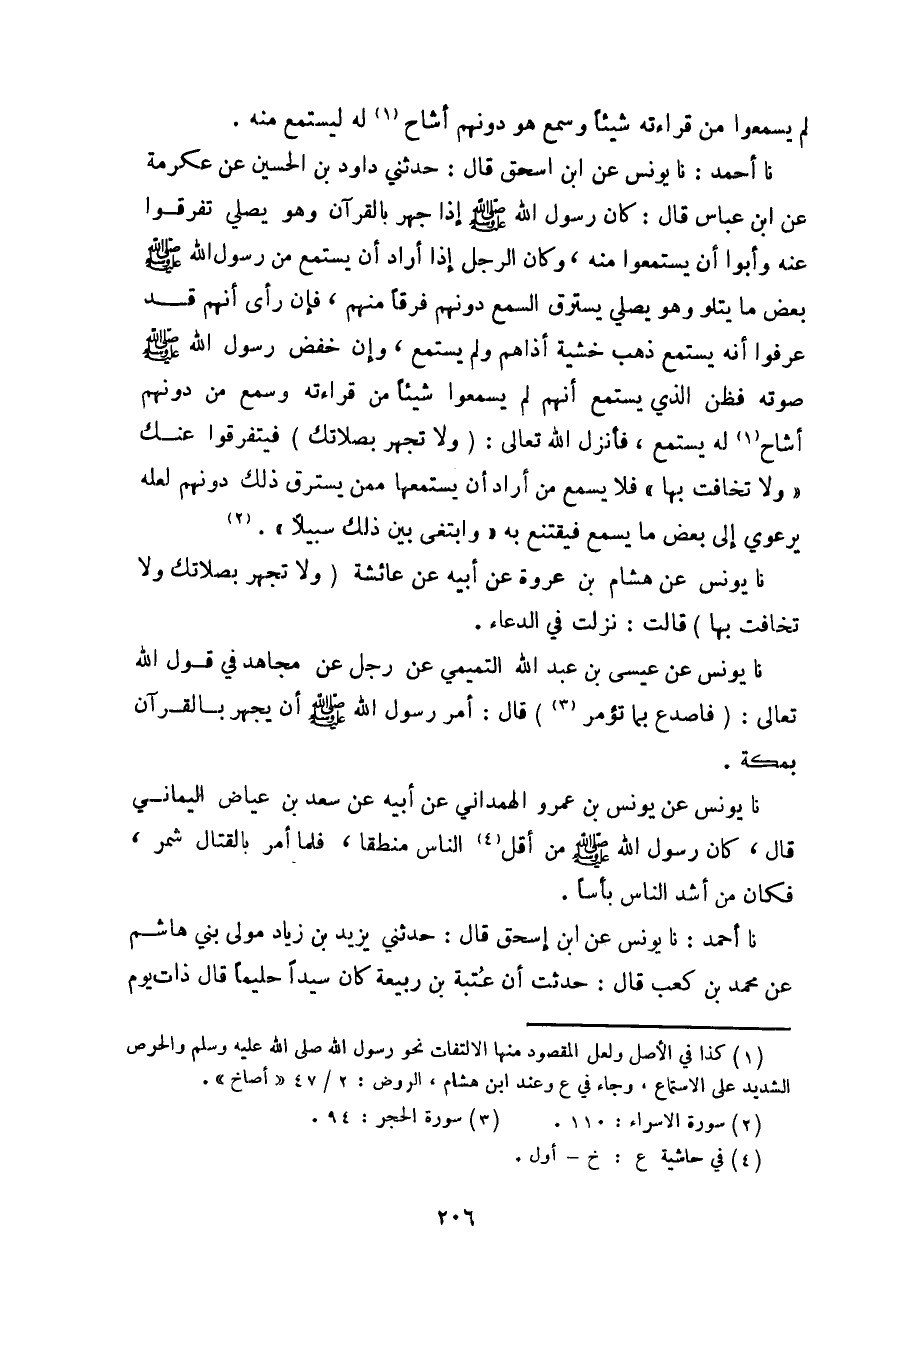 لم يسمعوا من قراءته شيئاً وسمع هو دونهم أشاح (١) له ليستمع منه .
نا أحمد : نا يونس عن ابن اسحق قال : حدثني داود بن الحسين عن عكرمة
عن ابن عباس قال : كان رسول الله ﷺ إذا جهر بالقرآن وهو يصلي تفرقوا
عنه وأبوا أن يستمعوا منه ، وكان الرجل إذا أراد أن يستمع من رسول الله ﷺ
بعض ما يتلو وهو يصلي يسترق السمع دونهم فرقاً منهم ، فإن رأى أنهم قد
عرفوا أنه يستمع ذهب خشية أذاهم ولم يستمع ، وإن خفض رسول الله ﷺ
صوته فظن الذي يستمع أنهم لم يسمعوا شيئاً من قراءته وسمع من دونهم
أشاح (١) له يستمع ، فأنزل الله تعالى : ( ولا تجهر بصلاتك ) فيتفرقوا عنك
« ولا تخافت بها » فلا يسمع من أراد أن يستمعها ممن يسترق ذلك دونهم لعله
يرعوي إلى بعض ما يسمع فيقتنع به « وابتغى بين ذلك سبيلاً » . (٢)
نا يونس عن هشام بن عروة عن أبيه عن عائشة ( ولا تجهر بصلاتك ولا
تخافت بها ) قالت : نزلت في الدعاء .
نا يونس عن عيسى بن عبد الله التميمي عن رجل عن مجاهد في قول الله
تعالى : ( فاصدع بما تؤمر (٣) ) قال : أمر رسول الله ﷺ أن يجهر بالقرآن
بمكة .
نا يونس عن يونس بن عمرو الهمداني عن أبيه عن سعد بن عياض اليماني
قال ، كان رسول الله ﷺ من أقل (٤) الناس منطقا ، فلما أمر بالقتال شمر ،
فكان من أشد الناس بأساً .
نا أحمد : نا يونس عن ابن إسحق قال : حدثني يزيد بن زياد مولى بني هاشم
عن محمد بن كعب قال : حدثت أن عُتبة بن ربيعة كان سيداً حليماً قال ذات يوم
(١) كذا في الأصل ولعل المقصود منها الالتفات نحو رسول الله صلى الله عليه وسلم والحرص
الشديد على الاستماع ، وجاء في ع وعند ابن هشام ، الروض : ٢ / ٤٧ « أصاخ » .
(٢) سورة الاسراء : ١١٠ . (٣) سورة الحجر : ٩٤ .
(٤) في حاشية ع : خ – أول .
٢٠٦